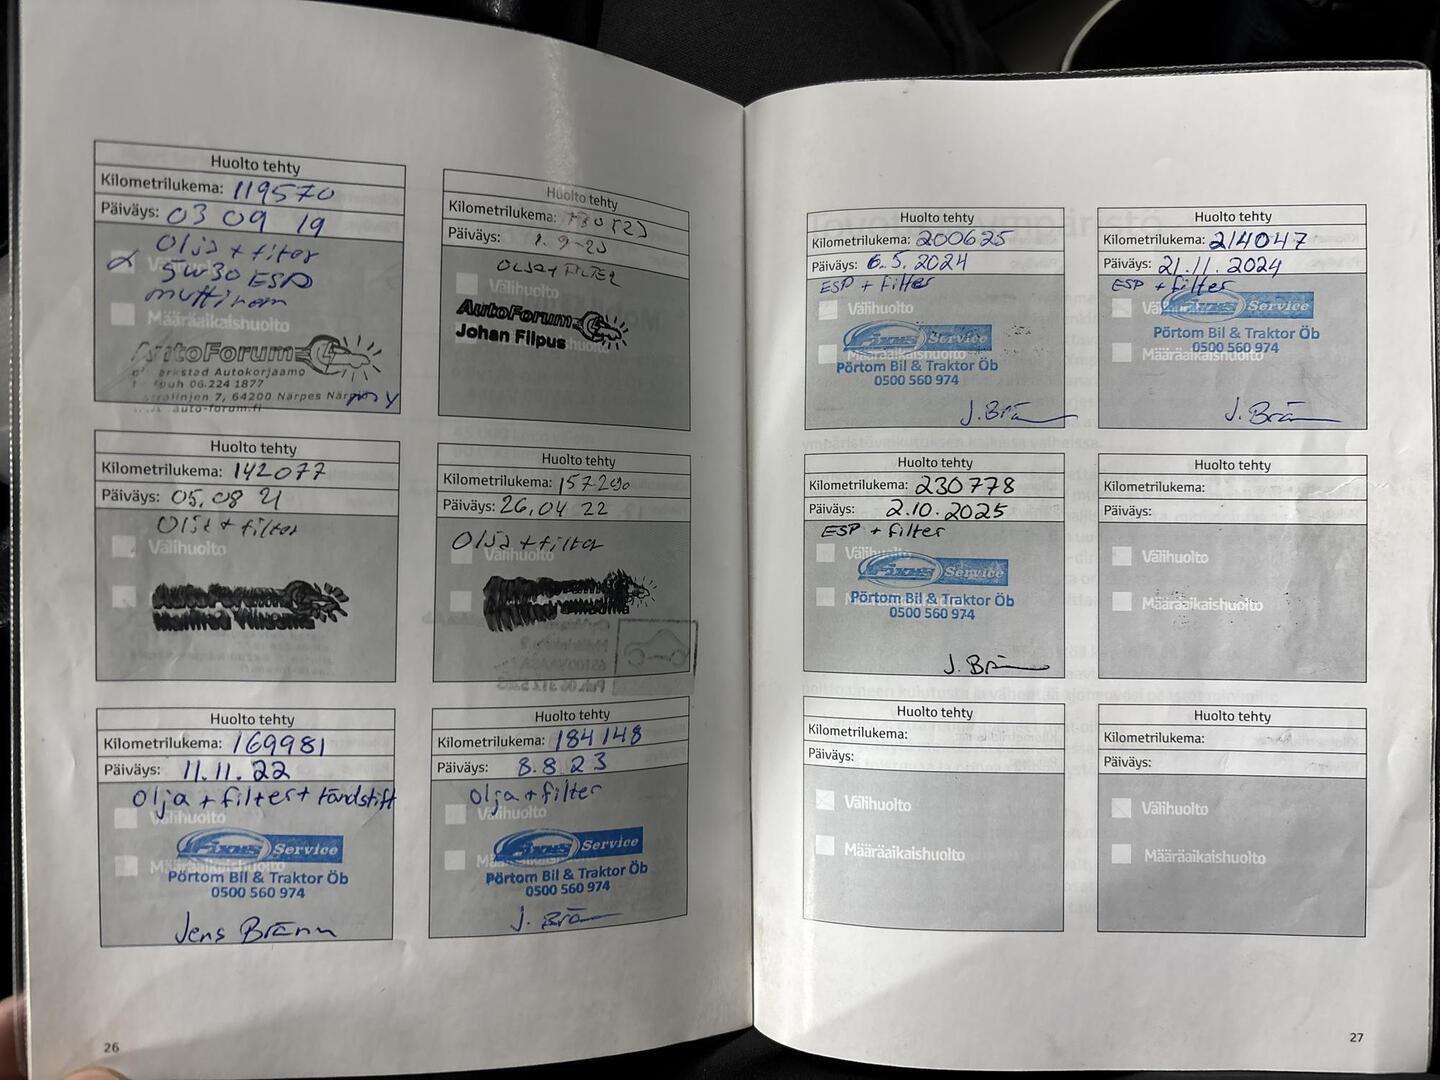 Huolto tehty
Kilometrilukema: 119570
Päiväys: 03 09 19
Olja + filter
5W30 ESP
Määräaikaishuolto
AutoForum
Autokorjaamo
06.224 1877
7, 64200 Närpes
auto-forum.fi
Huolto tehty
Kilometrilukema:
Päiväys: 1.9-20
Olja + FILTER
Välihuolto
AutoForum
Johan Filpus
Huolto tehty
Kilometrilukema: 142077
Päiväys: 05,08 21
Olja + filter
Välihuolto
Huolto tehty
Kilometrilukema: 157290
Päiväys: 26,04 22
Olja + filter
Välihuolto
Huolto tehty
Kilometrilukema: 169981
Päiväys: 11.11.22
Olja + filter + tändstift
Välihuolto
Fixus Service
Määräaikaishuolto
Pörtom Bil & Traktor Öb
0500 560 974
Jens Bränn
Huolto tehty
Kilometrilukema: 184148
Päiväys: 8.8.23
Olja + filter
Välihuolto
Fixus Service
Pörtom Bil & Traktor Öb
0500 560 974
J. Brä
26
Huolto tehty
Kilometrilukema: 200625
Päiväys: 6.5.2024
ESP + filter
Välihuolto
Fixus Service
Määräaikaishuolto
Pörtom Bil & Traktor Öb
0500 560 974
J. Brä
Huolto tehty
Kilometrilukema: 214047
Päiväys: 21.11.2024
ESP + filter
Fixus Service
Pörtom Bil & Traktor Öb
0500 560 974
Määräaikaishuolto
J. Brä
Huolto tehty
Kilometrilukema: 230778
Päiväys: 2.10.2025
ESP + filter
Välihuolto
Fixus Service
Pörtom Bil & Traktor Öb
0500 560 974
J. Brä
Huolto tehty
Kilometrilukema:
Päiväys:
Välihuolto
Määräaikaishuolto
Huolto tehty
Kilometrilukema:
Päiväys:
Välihuolto
Määräaikaishuolto
Huolto tehty
Kilometrilukema:
Päiväys:
Välihuolto
Määräaikaishuolto
27